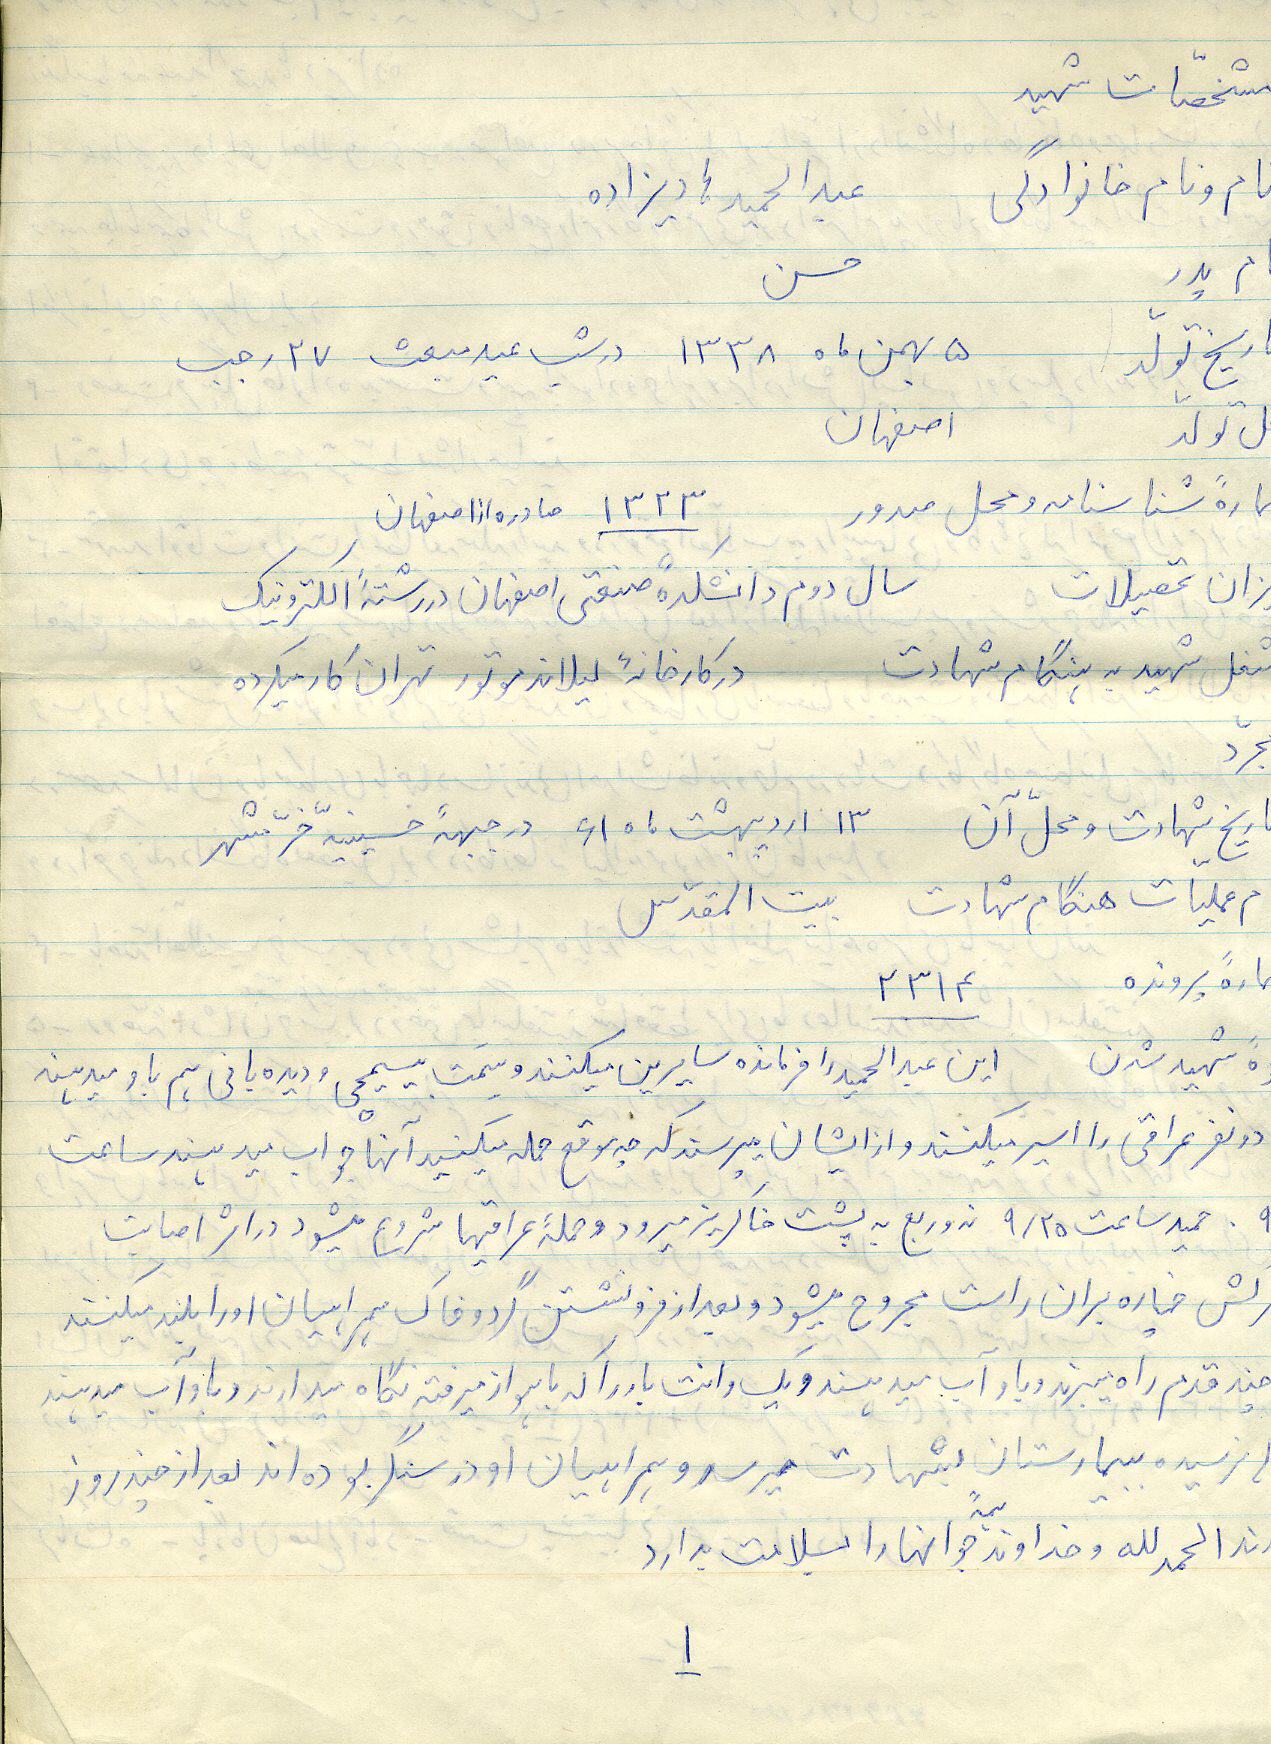 مشخصّات شهید
نام و نام خانوادگی عبدالحمید هادیزاده
نام پدر حسن
تاریخ تولّد ۵ بهمن ماه ۱۳۳۸ در شب عید مبعث ۲۷ رجب
ل تولّد اصفهان
مارهٔ شناسنامه و محل صدور ۱۳۲۳ صادره از اصفهان
یزان تحصیلات سال دوم دانشکدهٔ صنعتی اصفهان در رشتهٔ الکترونیک
شغل شهید به هنگام شهادت در کارخانهٔ لیلاند موتور تهران کار میکرده
مجرّد
تاریخ شهادت و محلّ آن ۱۳ اردیبهشت ماه ۶۱ در جبههٔ حسینیّه خرّمشهر
ام عملیّات هنگام شهادت بیت المقدّس
مارهٔ پرونده ۲۳۱۴
وهٔ شهید شدن این عبدالحمید را فرمانده سایرین میکنند و سِمَت بیسیمچی و دیده بانی هم باو میدهند
دو نفر عراقی را اسیر میکنند و از ایشان میپرسند که چه موقع حمله میکنید آنها جواب میدهند ساعت
۹ . حمید ساعت ۹/۲۵ نه و ربع به پشت خاکریز میرود و حملهٔ عراقیها شروع میشود در اثر اصابت
ترکش خمپاره بران راست مجروح میشود و بعد از فرو نشستن گرد و خاک همراهیان او را بلند میکنند
چند قدم راه میبرند و باو آب میدهند و یک وانت بار را که باهواز میرفته نگاه میدارند و باو آب میدهند
لی نرسیده ببیمارستان بشهادت میرسد و همراهیان او در سنگر بوده اند بعد از چند روز
رند الحمد لله و خداوند همهٔ جوانها را بسلامت بدارد
۱